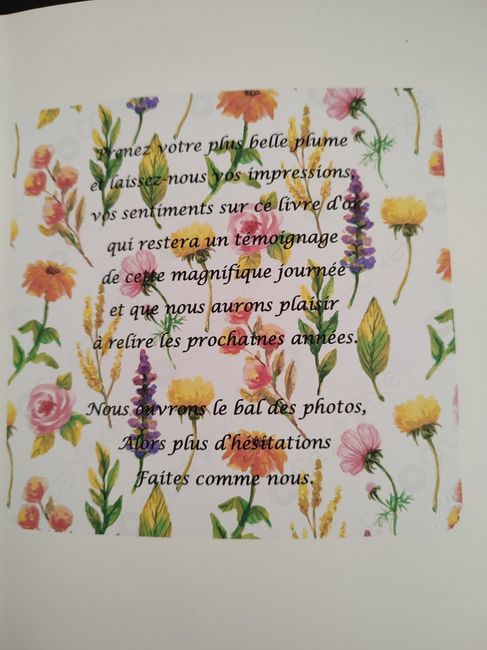 Prenez votre plus belle plume
et laissez-nous vos impressions,
vos sentiments sur ce livre d'or
qui restera un témoignage
de cette magnifique journée
et que nous aurons plaisir
à relire les prochaines années.
Nous ouvrons le bal des photos,
Alors plus d'hésitations
Faites comme nous.